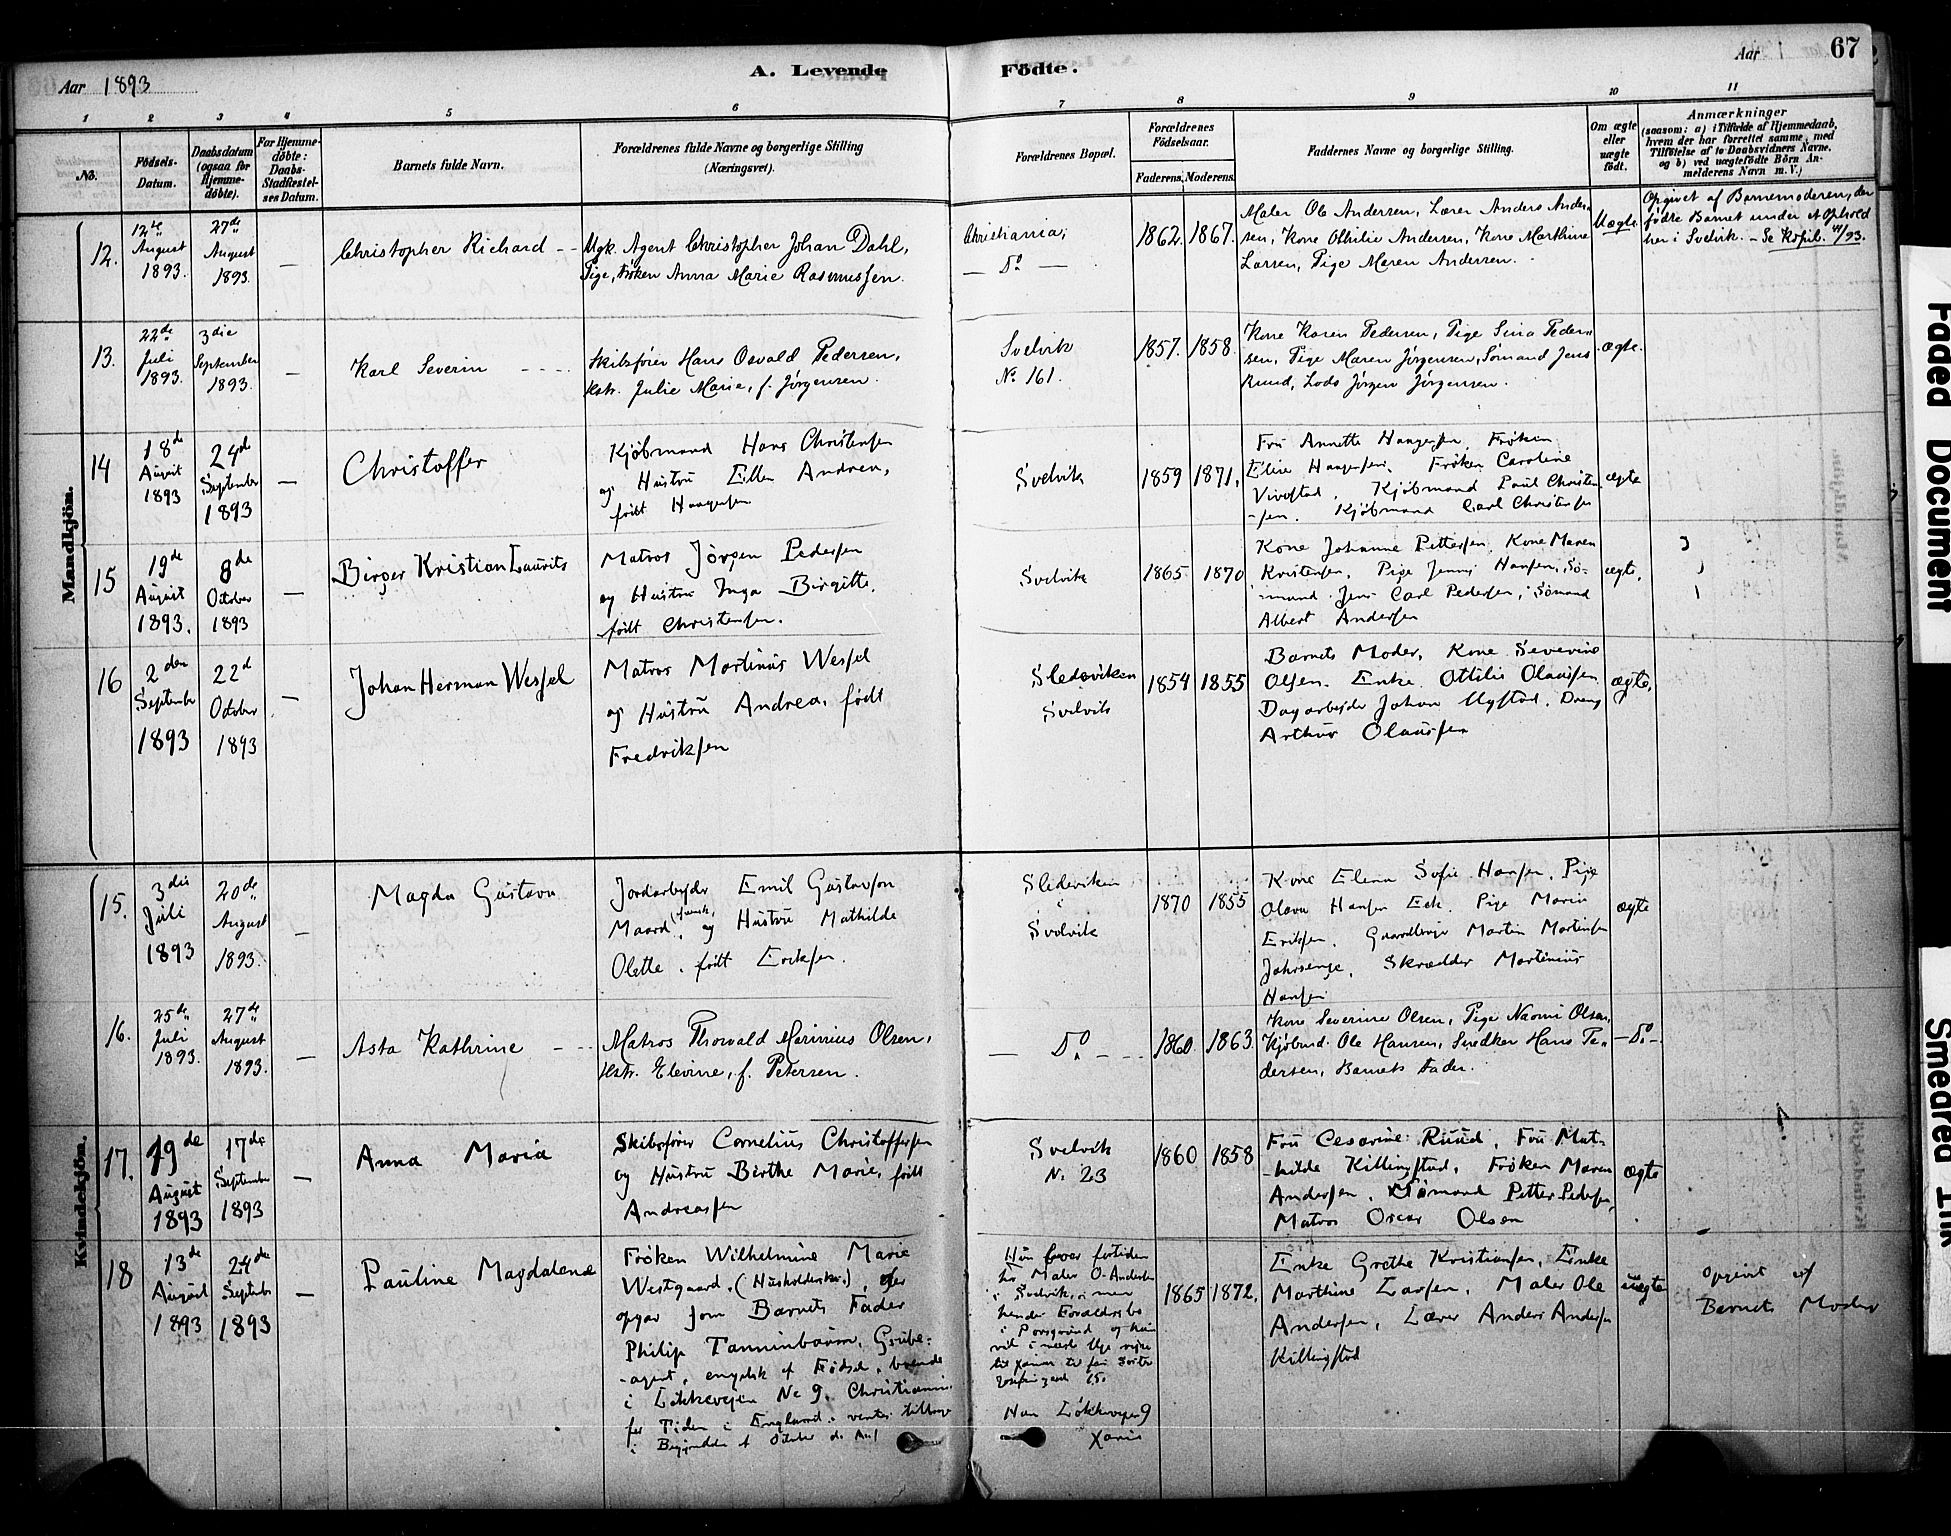 Aar 1893
A. Levende Födte.
Aar 1
67
1 2 3 4 5 6 7 8 9 10 11
No.
Födsels-
Datum.
Daabsdatum
(ogsaa for
Hjemme-
döbte).
For Hjemme-
döbte:
Daabs-
Stadfæstel-
ses Datum.
Barnets fulde Navn.
Forældrenes fulde Navne og borgerlige Stilling
(Næringsvei).
Forældrenes Bopæl.
Forældrenes
Födselsaar.
Faderens. Moderens.
Faddernes Navne og borgerlige Stilling.
Om ægte
eller
uægte
födt.
Anmærkninger
(saasom: a) i Tilfælde af Hjemmedaab,
hvem der har forrettet samme, med
Tilföielse af to Daabsvidners Navne,
og b) ved uægtefödte Börn An-
melderens Navn m. V.)
Mandkjön.
12.
12te
August
1893.
27de
August
1893.
—
Christopher Richard - -
Ugk. Agent Christopher Johan Dahl,
Pige, Frøken Anna Marie Rasmussen.
Christiania,
— Do —
1862. 1867.
Maler Ole Andersen, Lærer Anders Ander-
sen, Kone Othilie Andersen, Kone Marthine
Larsen, Pige Maren Andersen.
Uægte.
Opgivet af Barnemoderen, der
fødte Barnet under et Ophold
her i Svelvik. - Se Kopib. /93.
13.
22de
Juli
1893.
3die
September
1893.
—
Karl Severin - - - -
Skibsfører Hans Osvald Pedersen,
Hstr. Julie Marie, f. Jørgensen.
Svelvik
No 161.
1857. 1858.
Kone Karen Pedersen, Pige Sina Peder-
sen, Pige Maren Jørgensen, Sømand Jens
Ruud, Lods Jörgen Jörgensen.
ægte.
14
18de
August
1893
24de
September
1893
—
Christoffer
Kjöbmand Hans Christensen
og Hustru Ellen Andrea,
født Haagensen
Svelvik
1859 1871,
Fru Annette Haagensen, Frøken
Elise Haagensen, Frøken Caroline
Vivestad, Kjöbmand Paul Christen
-sen. Kjöbmand Carl Christensen
ægte
15
19de
August
1893.
8de
October
1893
—
Birger Kristian Laurits
Matros Jörgen Pedersen
og Hustru Inga Birgitte,
født Christensen.
Svelvik
1865 1870
Kone Johanne Pettersen, Kone Maren
Kristensen, Pige Jenny Hansen, Sø-
mand Jens Carl Pedersen, Sømand
Albert Andersen
ægte,
16
2den
September
1893
22d
October
1893
—
Johan Herman Wessel
Matros Martinus Wessel
og Hustru Andrea, født
Fredriksen
Sledeviken
Svelvik
1854 1855
Barnets Moder, Kone Severine
Olsen. Enke Ottilie Olaussen
Dagarbeyder Johan Nystad. Dreng
Arthur Olaussen
ægte,
Kvindekjön.
15.
3die
Juli
1893
20de
August
1893.
—
Magda Gustava
Jordarbeyder Emil Gustavson
Maard, (svensk) og Hustru Mathilde
Olette, født Eriksen.
Sledeviken
Svelvik
1870 1855
Kone Elena Sofie Hansen, Pige
Olava Hansen Eek. Pige Maria
Eriksen. Gaardbruger Martin Martinsen
Jahrsenge, Skrædder Martinius
Hansen
ægte
16.
25de
Juli
1893.
27de
August
1893.
—
Asta Kathrine - - -
Matros Thorvald Marinius Olsen,
Hstr. Elevine, f. Petersen.
— Do - - -
1860. 1863.
Kone Severine Olsen, Pige Naomi Olsen,
Kjöbmd. Ole Hansen, Snedker Hans Pe-
dersen, Barnets Fader.
- Do -
17.
19de
August
1893
17de
September
1893
—
Anna Maria
Skibsfører Cornelius Christoffersen
og Hustru Birthe Marie, født
Andreassen
Svelvik
No 23
1860 1858
Fru Cesarine Ruud, Fru Mat-
-hilde Killingstad, Frøken Maren
Andersen. Sømand Petter Pedersen,
Matros Oscar Olsen
ægte
18
13de
August
1893
24de
September
1893
—
Pauline Magdalena
Frøken Wilhelmine Marie
Westgaard, (Husholderske), der
opgav som Barnets Fader
Philip Tanninbaum, Grube-
-agent, engelsk af Fødsel, boende
i Løkkeveien No 9, Christiania
for Tiden i England, ventes tilbage
i Begyndelse af October
Hun bor fortiden
hos Maler O. Andersen
i Svelvik, men
hendes Forældre bo
i Porsgrund og hun
vil i næste Uge reise
Han Løkkeveien 9
Xania
1865 1872,
Enke Grethe Kristiansen, Enke
Marthine Larsen, Maler Ole
Andersen, Lærer Anders Andersen
Killingstad
uægte
Opgivet af
Barnets Moder
Faded Document
Smeared Ink